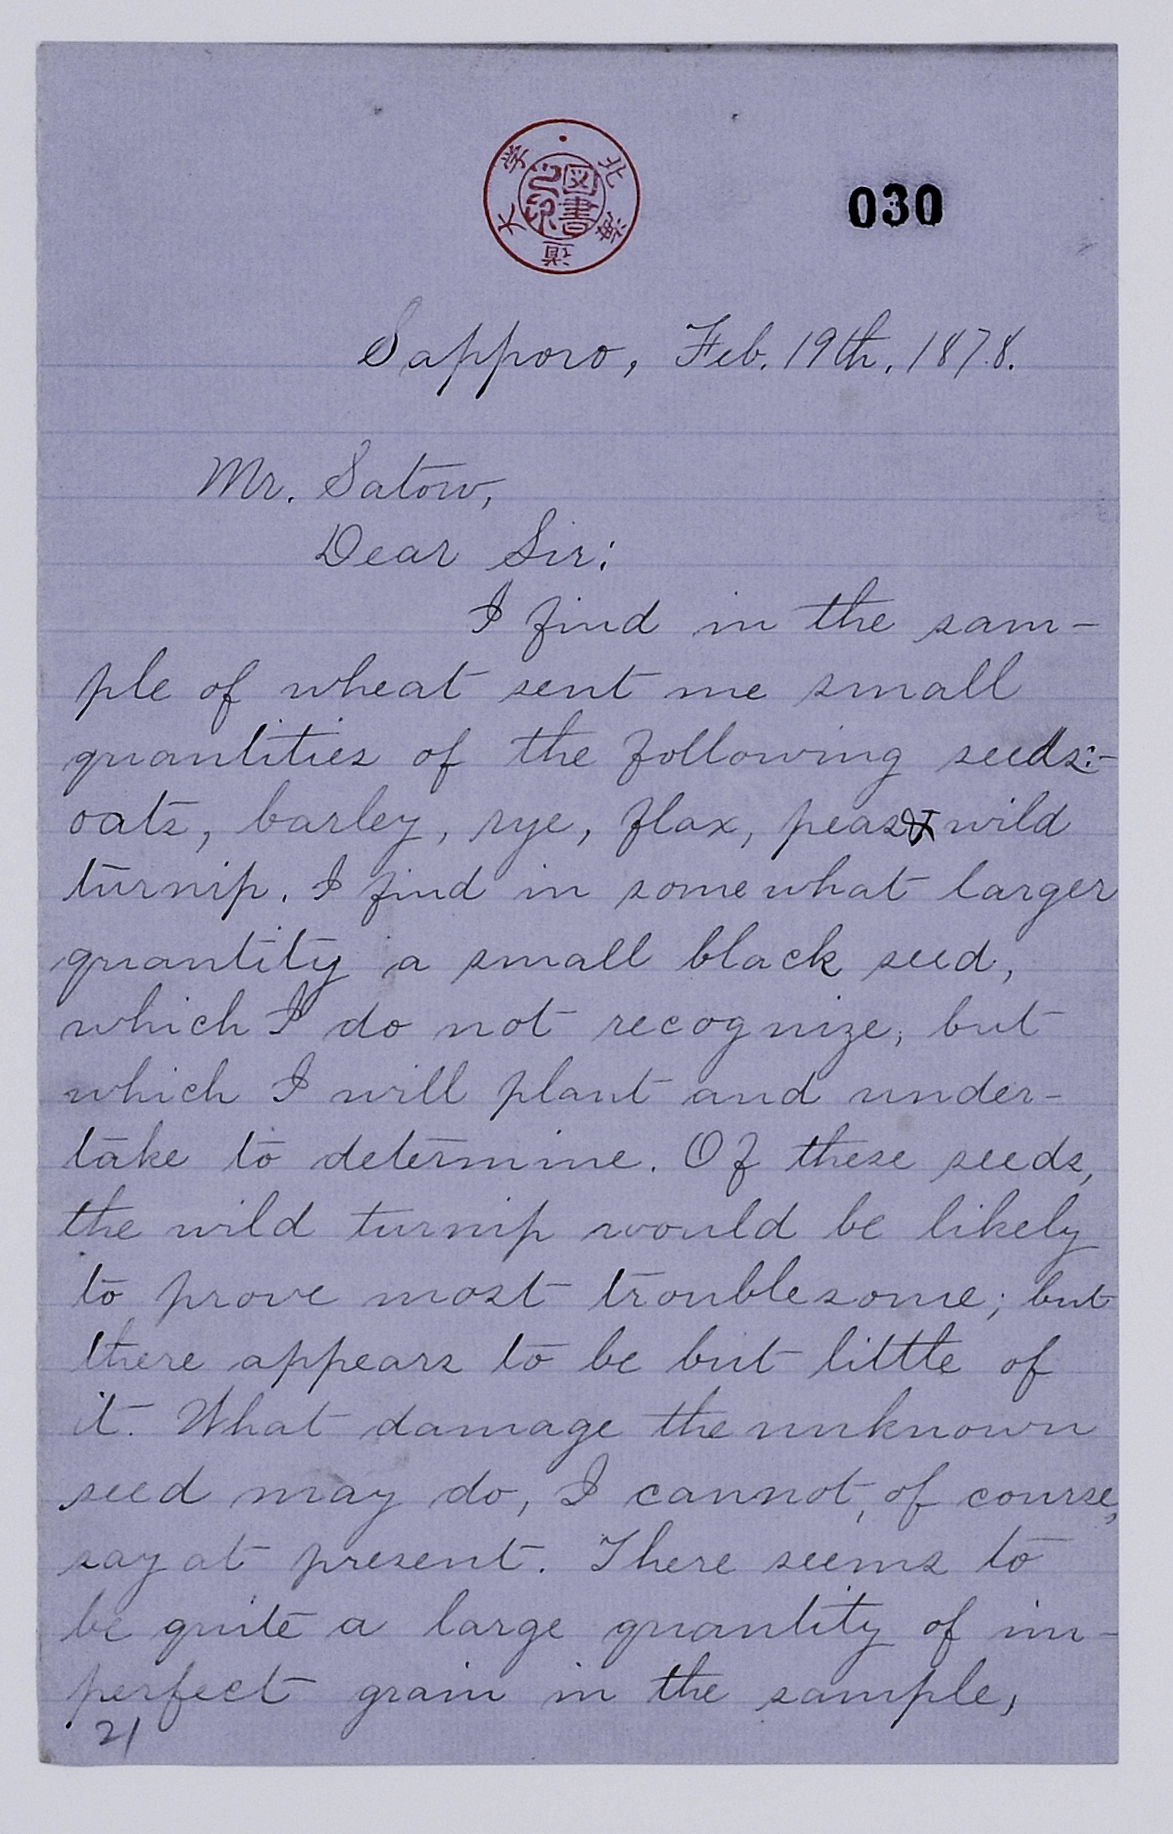 北海道大学
図書之印
030
Sapporo, Feb. 19th, 1878.
Mr. Satow,
Dear Sir:
I find in the sam-
ple of wheat sent me small
quantities of the following seeds:-
oats, barley, rye, flax, peas & wild
turnip. I find in somewhat larger
quantity a small black seed,
which I do not recognize, but
which I will plant and under-
take to determine. Of these seeds,
the wild turnip would be likely
to prove most troublesome; but
there appears to be but little of
it. What damage the unknown
seed may do, I cannot, of course,
say at present. There seems to
be quite a large quantity of im-
perfect grain in the sample,
21